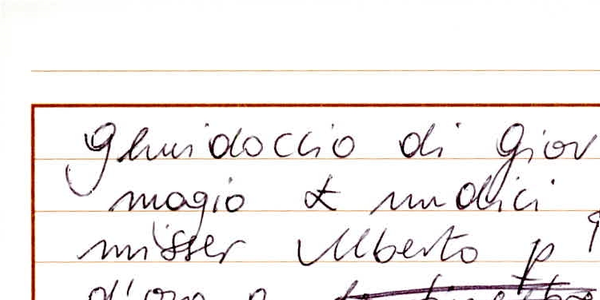 Ghuidoccio di Giov
magio & undici
misser Alberto p
d'oro